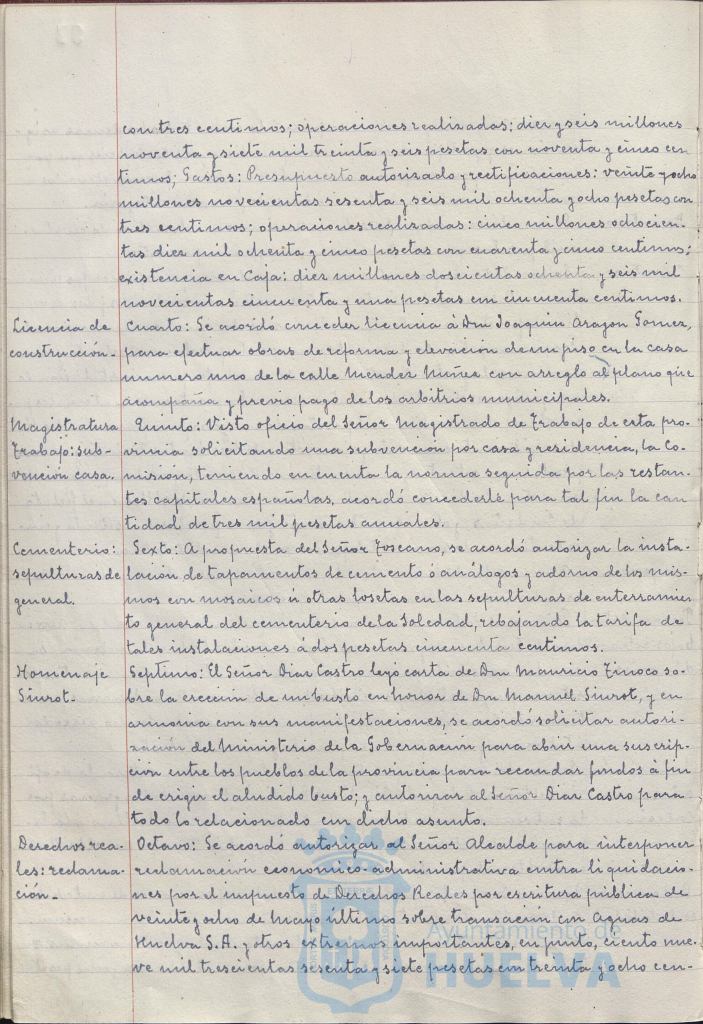 con tres centimos; operaciones realizadas: diez y seis millones
noventa y siete mil treinta y seis pesetas con noventa y cinco cen-
timos; Gastos: Presupuesto autorizado y rectificaciones: veinte y ocho
millones novecientas sesenta y seis mil ochenta y ocho pesetas con
tres centimos; operaciones realizadas: cinco millones ochocien-
tas diez mil ochenta y cinco pesetas con cuarenta y cinco centimos;
existencia en Caja: diez millones doscientas ochenta y seis mil
novecientas cincuenta y una pesetas con cincuenta centimos.
Licencia de
construcción.-
Cuarto: Se acordó conceder licencia á Don Joaquin Aragon Gomez,
para efectuar obras de reforma y elevación de un piso en la casa
numero uno de la calle Mendez Nuñez con arreglo al plano que
acompaña y previo pago de los arbitrios municipales.
Magistratura
Trabajo: sub-
vencion casa.
Quinto: Visto oficio del Señor Magistrado de Trabajo de esta pro-
vincia solicitando una subvencion por casa y residencia, la Co-
misión, teniendo en cuenta la norma seguida por las restan-
tes capitales españolas, acordó concederle para tal fin la can-
tidad de tres mil pesetas anuales.
Cementerio:
sepulturas de
general.
Sexto: A propuesta del Señor Toscano, se acordó autorizar la insta-
lación de tapamentos de cemento ó análogos y adorno de los mis-
mos con mosaicos ú otras losetas en las sepulturas de enterramien-
to general del cementerio de la Soledad, rebajando la tarifa de
tales instalaciones á dos pesetas cincuenta centimos.
Homenaje
Siurot.-
Septimo: El Señor Diaz Castro leyó carta de Don Mauricio Tinoco so-
bre la ereccion de un busto en honor de Don Manuel Siurot, y en
armonia con sus manifestaciones, se acordó solicitar autori-
zación del Ministerio de la Gobernación para abrir una suscrip-
ción entre los pueblos de la provincia para recaudar fondos á fin
de erigir el aludido busto; y autorizar al Señor Diaz Castro para
todo lo relacionado con dicho asunto.
Derechos rea-
les: reclama-
ción.-
Octavo: Se acordó autorizar al Señor Alcalde para interponer
reclamación economico-administrativa contra liquidacio-
nes por el impuesto de Derechos Reales por escritura pública de
veinte y ocho de Mayo último sobre transación con Aguas de
Huelva S.A. y otros extremos importantes, en junto, ciento nue-
ve mil trescientas sesenta y siete pesetas con treinta y ocho cen-
Ayuntamiento de
HUELVA